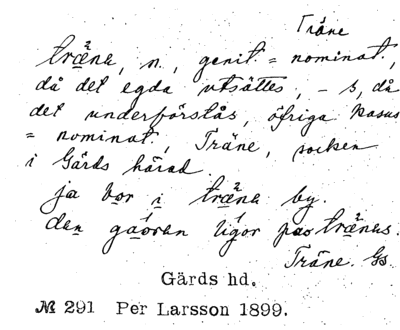 Träne
träne, n., genit. = nominat.,
då det egda utsättes, – s, då
det underförstås, öfriga kasus
= nominat., Träne, socken
i Gärds härad.
ja bor i träne by.
den gåoren ligor pao tränes.
Träne. Gs
Gärds hd.
№ 291 Per Larsson 1899.